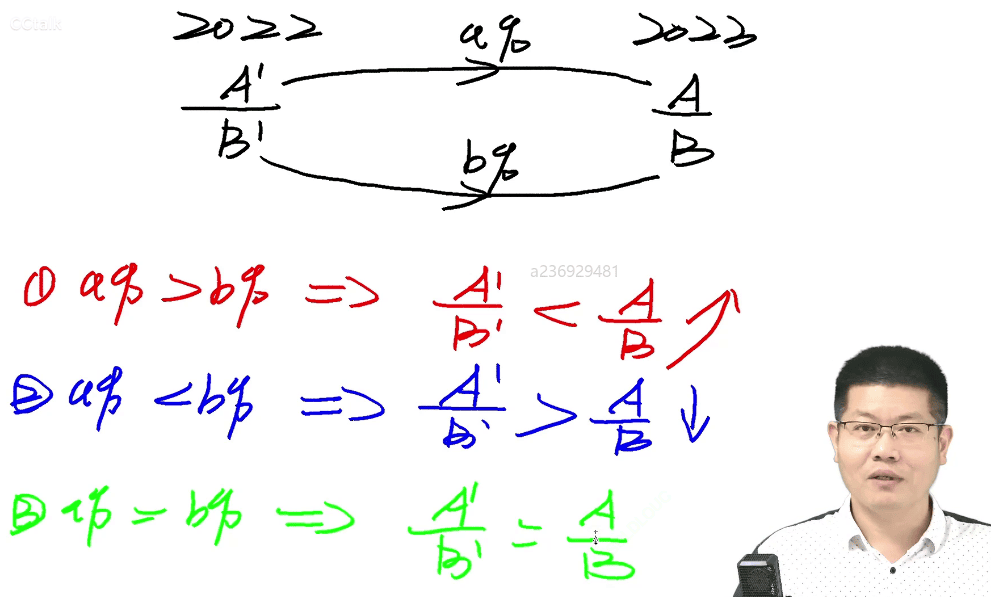 CCtalk
2022 a% 2023
A'/B' b% A/B
a236929481
① a% > b% => A'/B' < A/B ↗
② a% < b% => A'/B' > A/B ↓
③ a% = b% => A'/B' = A/B